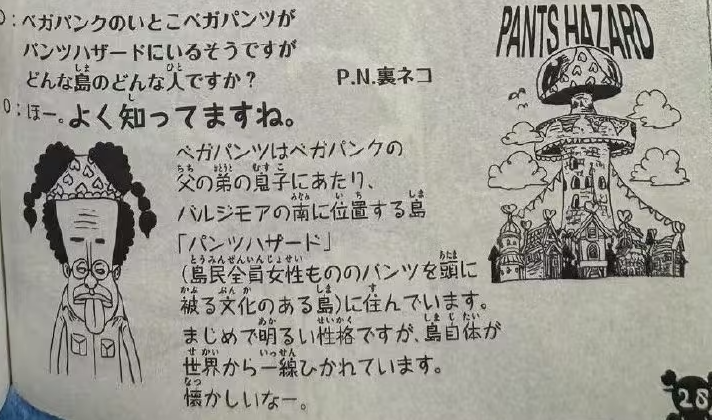 D：ベガパンクのいとこベガパンツが
パンツハザードにいるそうですが
どんな島のどんな人ですか？ P.N.裏ネコ
O：ほー。よく知ってますね。
ベガパンツはベガパンクの
父の弟の息子にあたり、
バルジモアの南に位置する島
「パンツハザード」
(島民全員女性もののパンツを頭に
被る文化のある島)に住んでいます。
まじめで明るい性格ですが、島自体が
世界から一線ひかれています。
懐かしいなー。
PANTS HAZARD
28